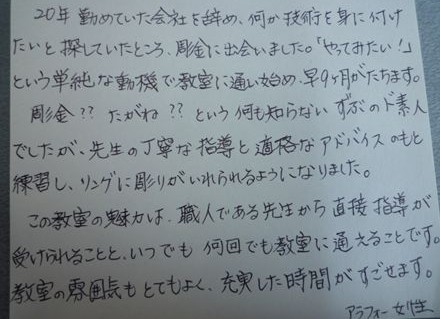 20年勤めていた会社を辞め、何か技術を身に付け
たいと探していたところ、彫金に出会いました。「やってみたい!」
という単純な動機で教室に通い始め、早9ヶ月がたちます。
彫金?? たがね?? という何も知らない ずぶのド素人
でしたが、先生の丁寧な指導と適格なアドバイスのもと
練習し、リングに彫りがいれられるようになりました。
この教室の魅力は、職人である先生から直接指導が
受けられることと、いつでも何回でも教室に通えることです。
教室の雰囲気もとてもよく、充実した時間がすごせます。
アラフォー女性